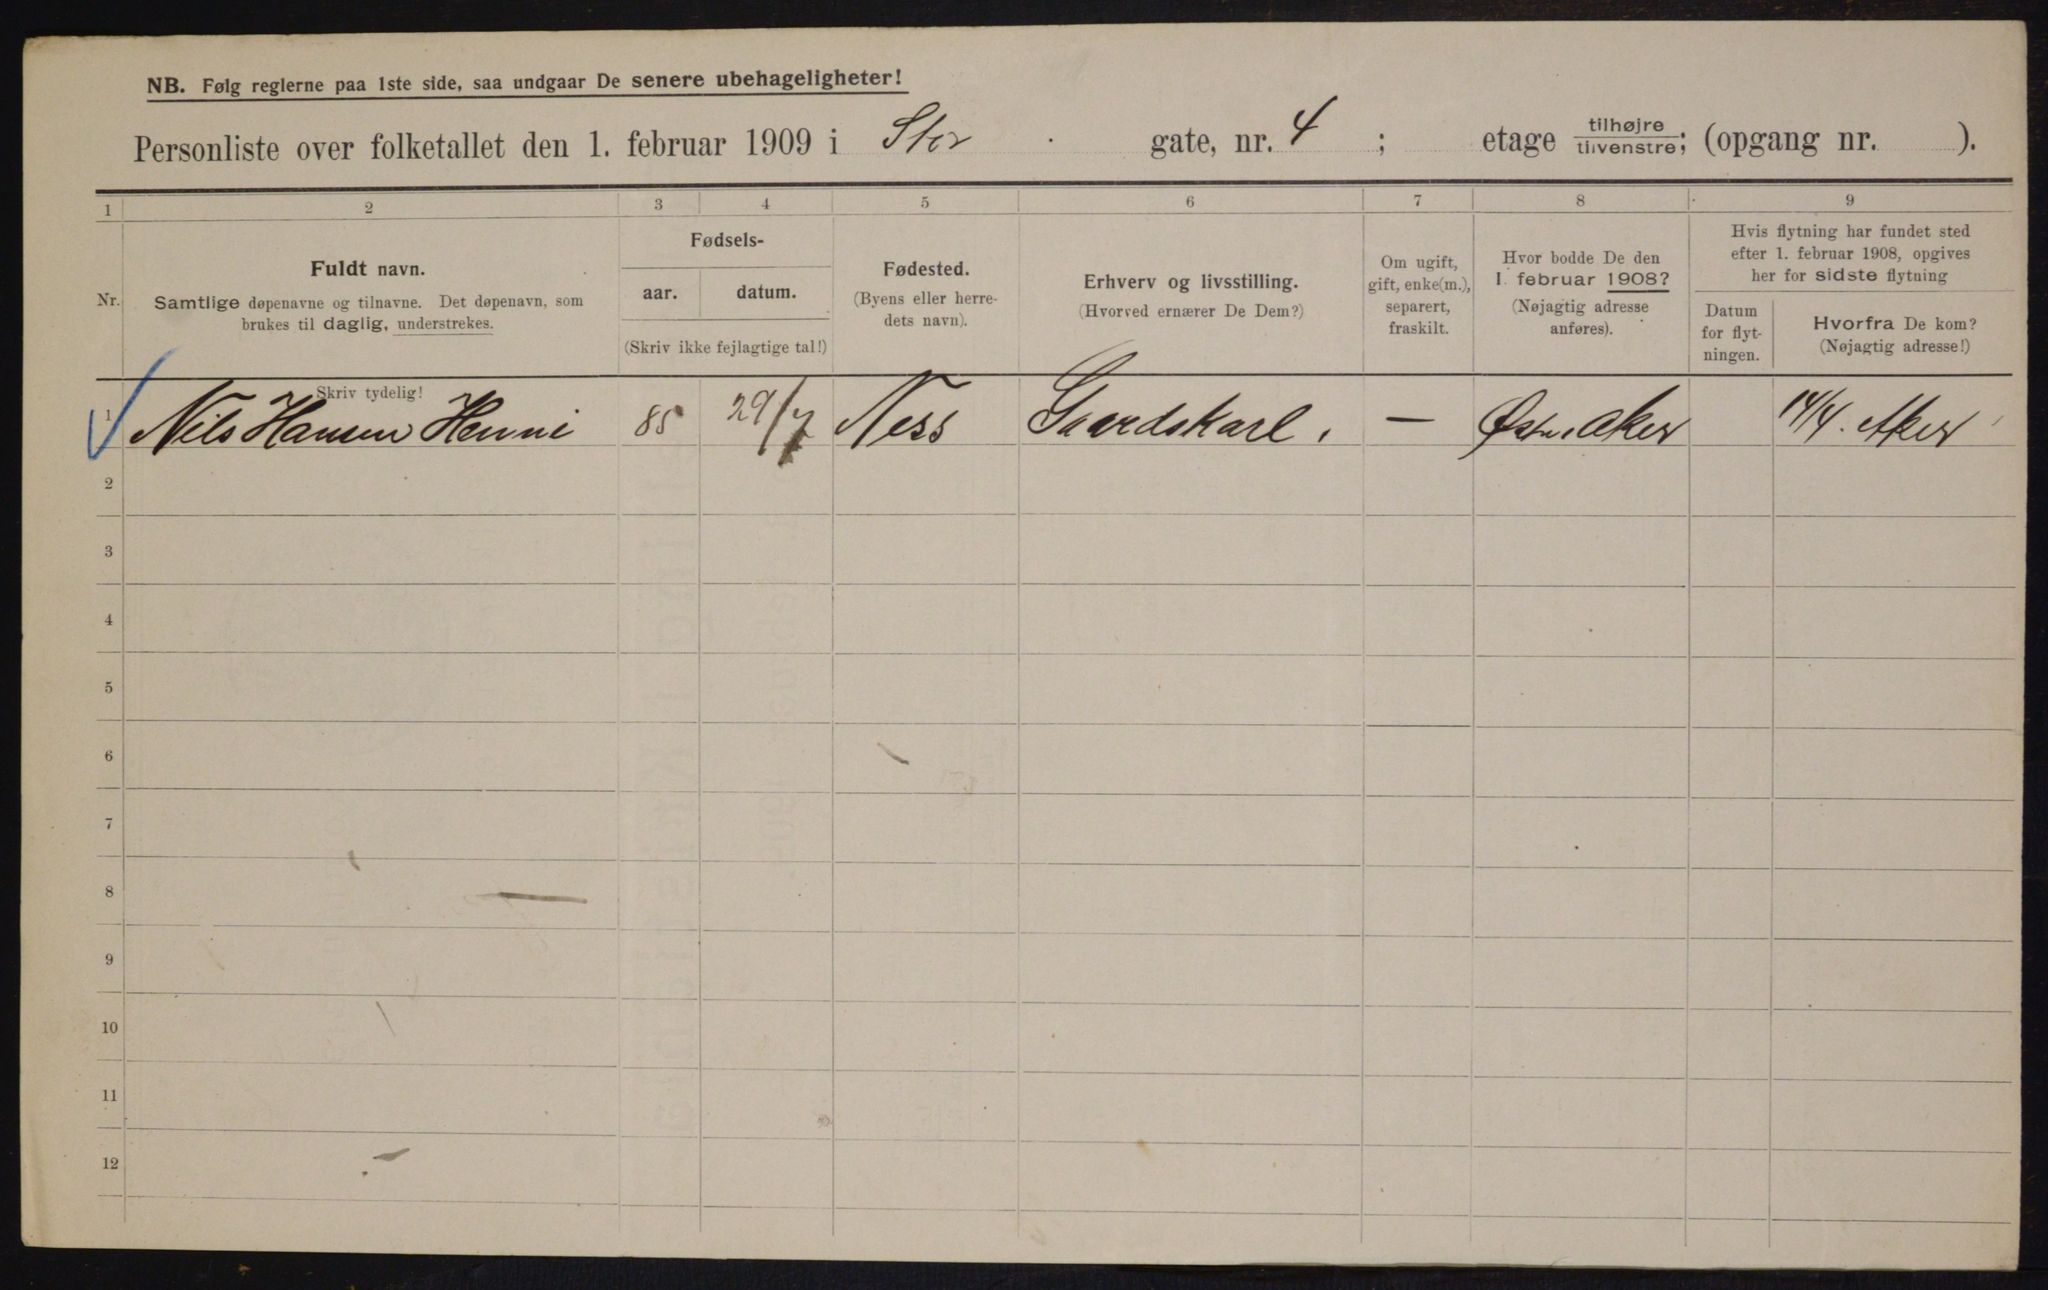 NB. Følg reglerne paa 1ste side, saa undgaar De senere ubehageligheter!
Personliste over folketallet den 1. februar 1909 i Stor gate, nr. 4 ; etage tilhøjre tilvenstre; (opgang nr. ).
1 2 3 4 5 6 7 8 9
Nr.
Fuldt navn.
Samtlige døpenavne og tilnavne. Det døpenavn, som
brukes til daglig, understrekes.
Fødsels-
aar. datum.
(Skriv ikke fejlagtige tal!)
Fødested.
(Byens eller herre-
dets navn).
Erhverv og livsstilling.
(Hvorved ernærer De Dem?)
Om ugift,
gift, enke(m.),
separert,
fraskilt.
Hvor bodde De den
1. februar 1908?
(Nøjagtig adresse
anføres).
Hvis flytning har fundet sted
efter 1. februar 1908, opgives
her for sidste flytning
Datum
for flyt-
ningen.
Hvorfra De kom?
(Nøjagtig adresse!)
Skriv tydelig!
1 Nils Hansen Henni 85 29/7 Ness Gaardskarl. — Østre Aker 14/4. Aker
2
3
4
5
6
7
8
9
10
11
12